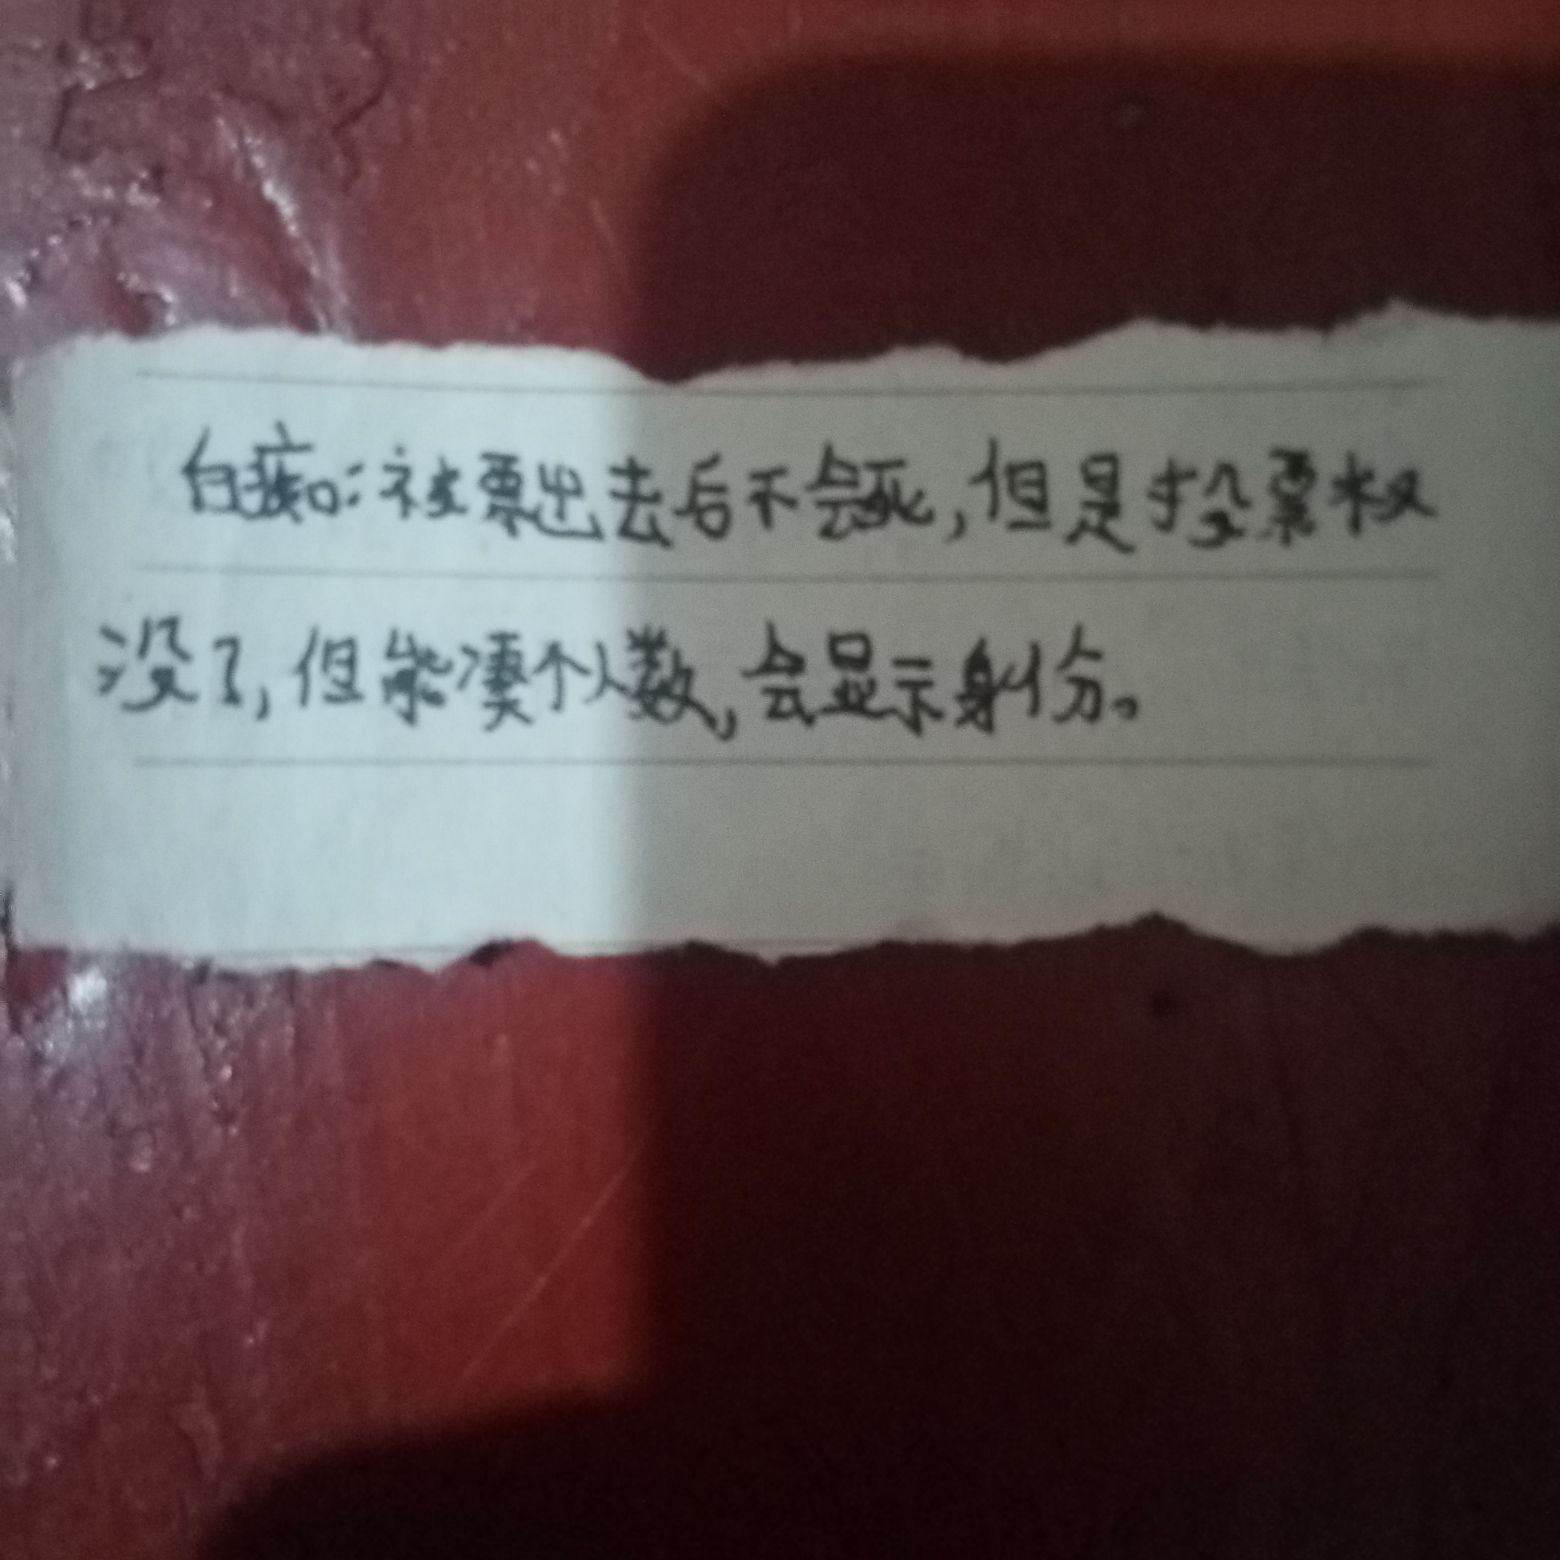 白痴:被票出去后不会死,但是投票权
没了,但能凑个人数,会显示身份。